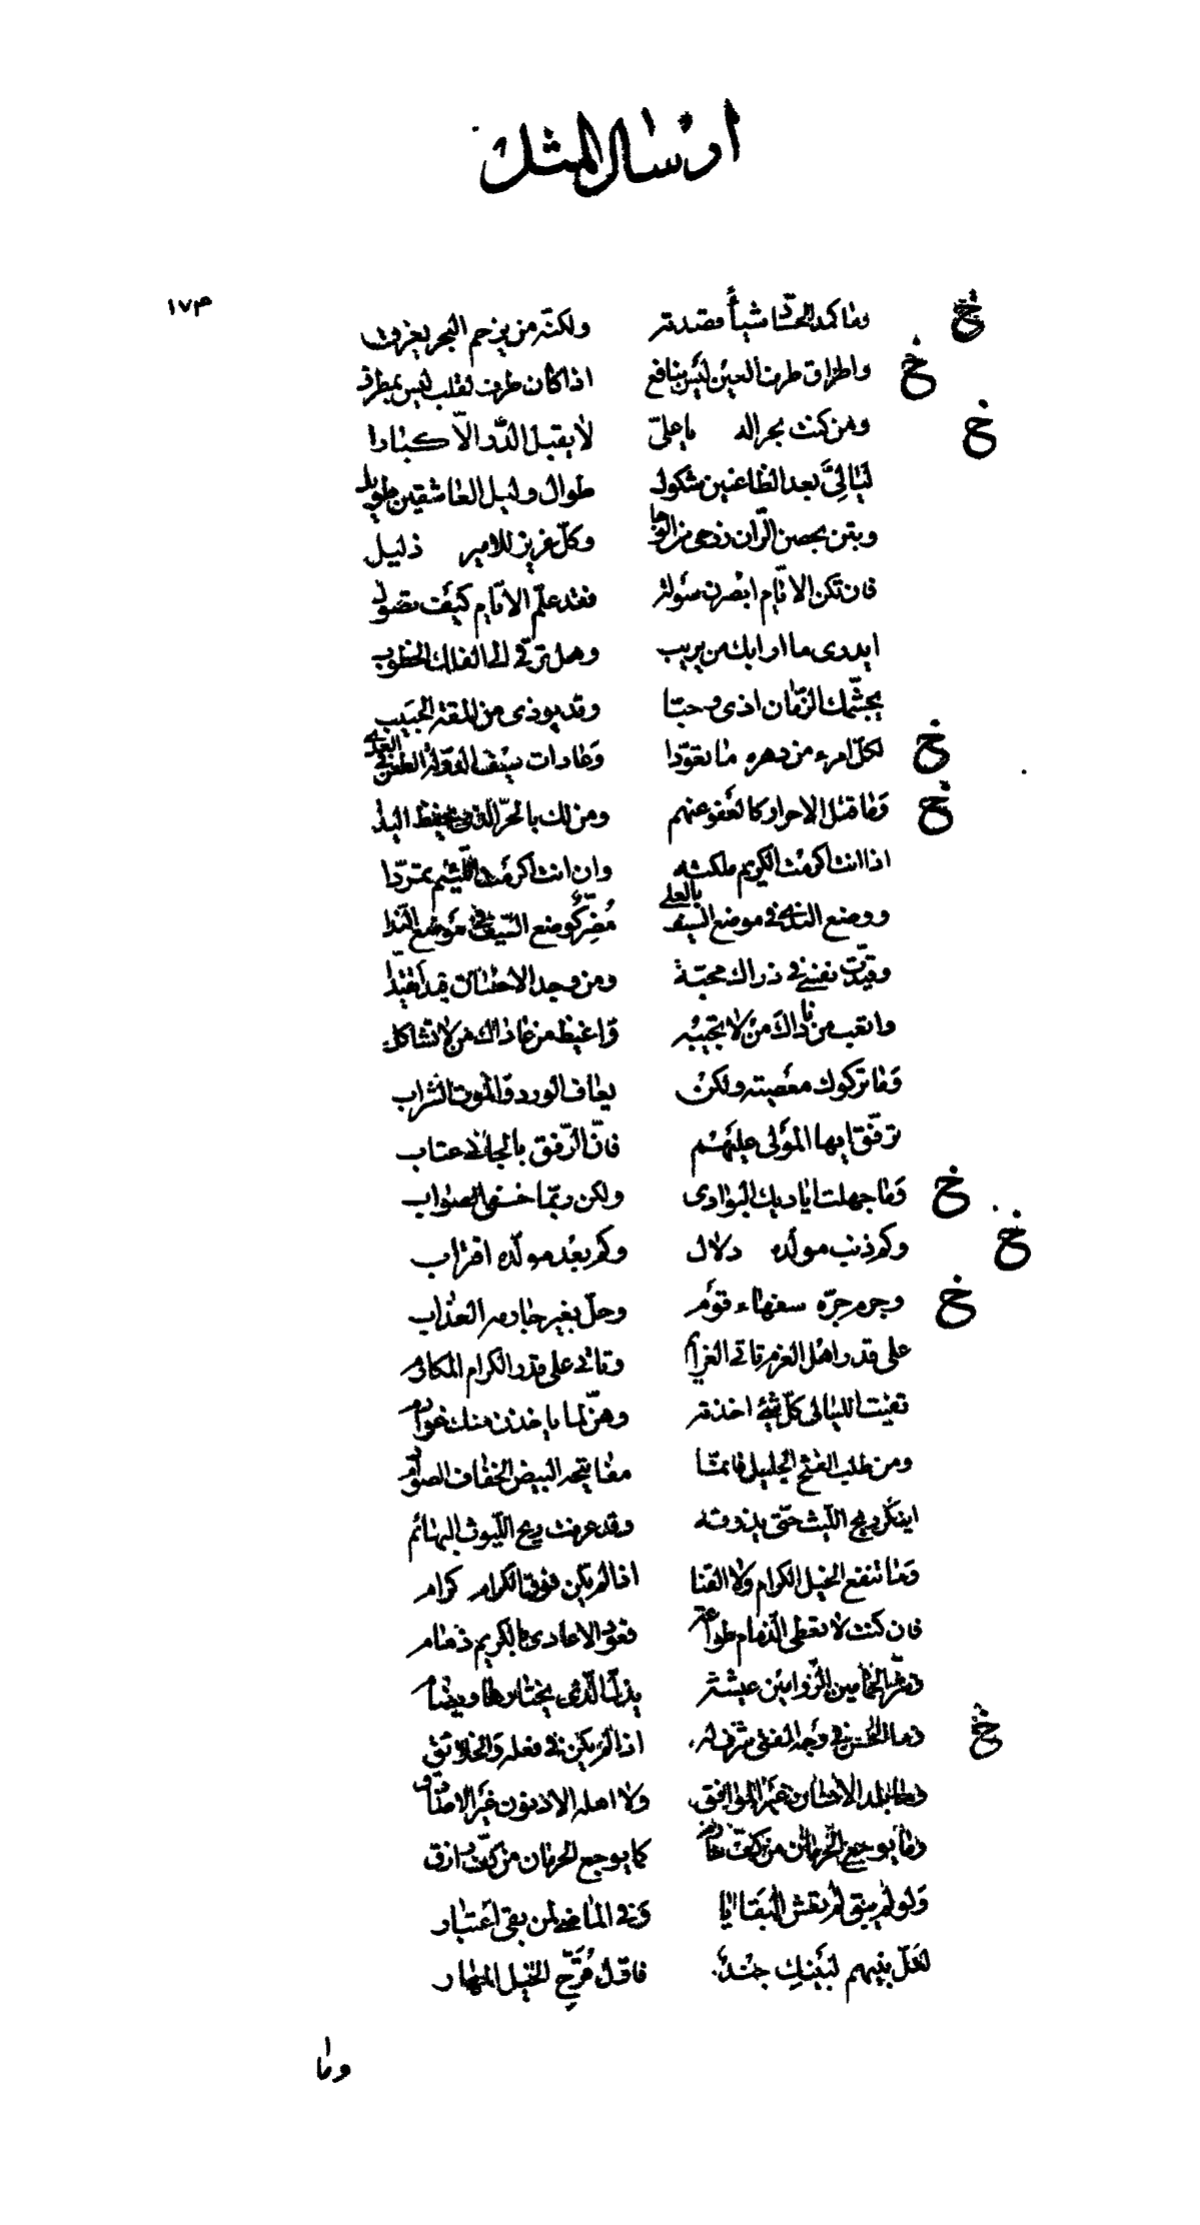 ارسال المثل
١٧٣
خ وما كمد الحسّاد شيأً قصدته ولكنّه من يزحم البحر يغرق
خ واطراق طرف العين ليس بنافع اذا كان طرف لقلب ليس بمطرق
خ ومن كنت بحراله ياعليّ لا يقبل الدّر الّا كبارا
ليالِيَّ بعد الظاعنين شكول طوال وليل العاشقين طويل
وبتن بحصن الرّان رزحى من الوجا وكلّ عزيز للامير ذليل
فان تكن الايّام ابصرن صوله فقد علّم الايّام كيف تصول
ايدرى ما ارابك من يريب وهل ترقى الى الفلك الخطوب
يجشّمك الزمان اذى وحبّا وقد يوذى من المقة الحبيب
خ لكلّ امرء من دهره ما تعوّدا وعادات سيف الدولة الطعن فى العدى
خ وما قتل الاحرار كالعفو عنهم ومن لك بالحرّ الذى يحفظ اليدا
اذا انت اكرمت الكريم ملكته وان انت اكرمت اللئيم تمرّدا
ووضع الندى فى موضع السيف بالعلى مُضِرّ كوضع السّيف فى موضع النّدا
وقيّدت نفسى فى ذراك محبّة ومن وجد الاحسان قيدا تقيّدا
واتعب من ناداك من لا تجيبه واغيظ من عاداك من لا تشاكل
وما تركوك معصيته ولكن يعاف الورد والموت الشراب
ترفّق ايها المولى عليهم فانّ الرّفق بالجانى عتاب
خ وما جهلت اياديك البوادى ولكن ربّما خفى الصواب
خ وكم ذنب مولده دلال وكم بعد مولّده اقتراب
خ وجرم جرّه سفهاء قوم وحلّ بغير جارمه العذاب
على قدر اهل العزم تاتى العزايم وتاتى على قدر الكرام المكارم
تفيت الليالى كلّ شئ اخذته وهنّ لما ياخذن منك غوارم
ومن طلب الفتح الجليل فانمّا مفاتيحه البيض الخفاف الصوارم
اينكر ريح الليث حتى يذوقه وقد عرفت ريح الليوث البهائم
وما تنفع الخيل الكرام ولا القنا اذا لم يكن فوق الكرام كرام
فان كنت لا تعطى الذمام طواعة فعوذ الاعادى بالكريم ذمام
وشرّ الحمامين الزّوامين عيشة يذلّ الّذى يختارها ويضام
خ وما الحسن فى وجه الفتى شرفا له اذا لم يكن فى فعله والخلائق
وما بلد الانسان غير الموافق ولا اهله الادنون غير الاصادق
وما يوجع الحرمان من كفّ حارم كما يوجع الحرمان من كفّ رازق
ولو لم يبق لم تعش البقايا وفى الماضى لمن بقى اعتبار
لعلّ بنيهم لبنيك جند فاوّل قُرّحِ الخيل المهار
وما